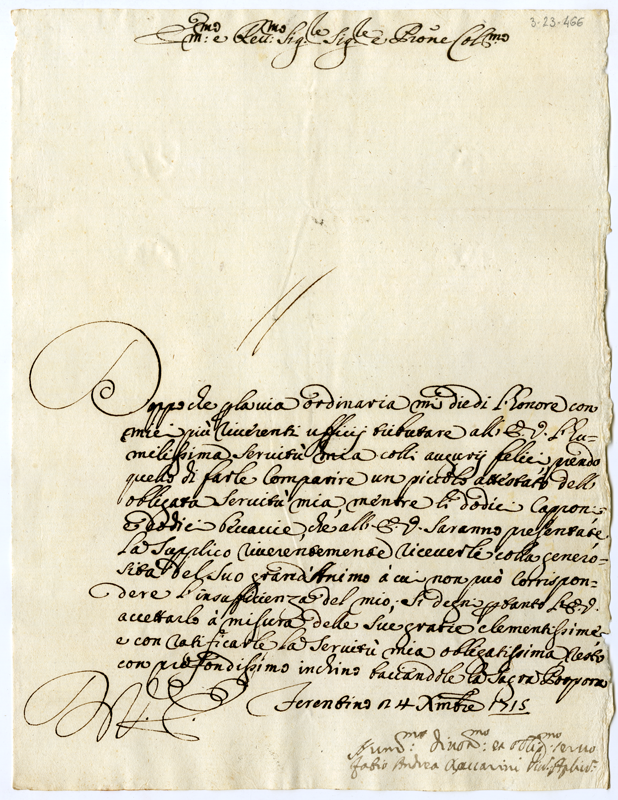 3-23-466
m:mo e Rev:mo Sig:le Sig:le e P̄rone Col:mo
Doppo che p la via ordinaria mi diedi l'honore con
miei più riverenti ufficij tributare all'E. V. l'hu=
milissima Servitù mia colli augurij felici, prendo
quello di farle Comparire un piccolo attestato dell'
obligata Servitù mia, mentre li dodici Capponi
e dodici beccaccie, che all'E. V. Saranno presentate
La Supplico riverentemente riceverle colla genero=
sità del Suo grand'Animo à cui non può Corrispon=
dere l'insufficienza del mio; Si degni p tanto l'E. V.
accettarlo à misura delle Sue gratie clementissime
e con ratificarle la Servitù mia obligatissima resto
con profondissimo inchino baciandole la Sagra Porpora
Ferentino 24 Xmbre 1715
Hum:mo Divot:mo et oblig:mo servo
Fabio Andrea